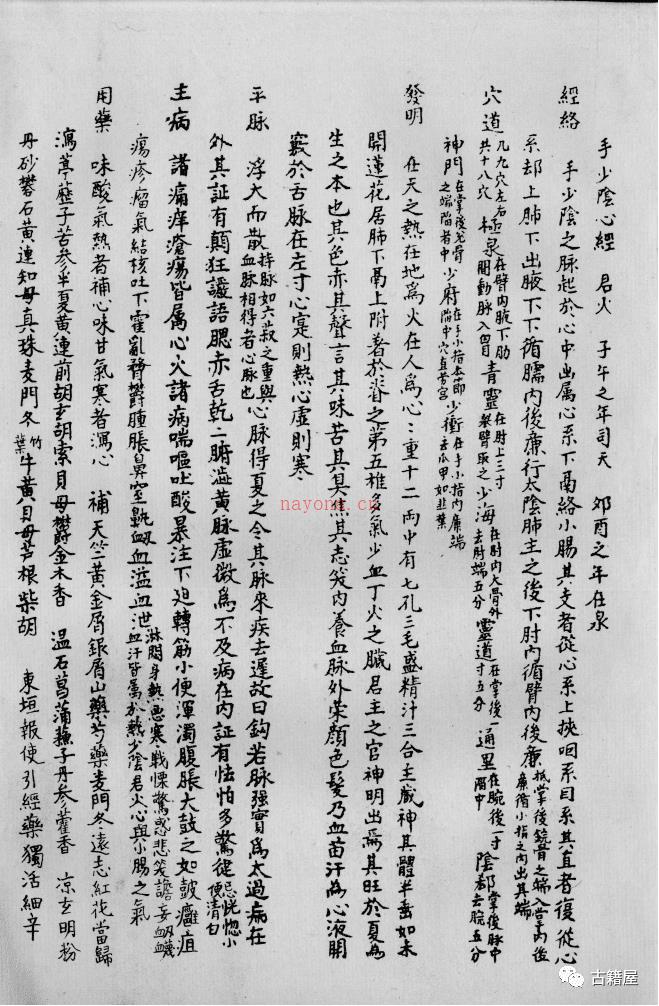 手少陰心經 君火 子午之年司天 卯酉之年在泉
經絡 手少陰之脉起於心中出属心系下鬲絡小腸其支者從心系上挾咽系目系其直者復從心
系却上肺下出腋下下循臑内後廉行太陰肺主之後下肘内循臂内後廉抵掌後銳骨之端入掌内後
廉循小指之内出其端
穴道 凡九穴左右
共十八穴 極泉在臂内腋下肋
間動脉入胷 青靈在肘上三寸
舉臂取之 少海在肘内大骨外
去肘端五分 靈道在掌後一
寸五分 通里在腕後一寸
陷中 陰郄掌後脉中
去腕五分
神門在掌後兌骨
之端陷者中 少府在手小指本節
陷中穴直勞宫 少衝在手小指内廉端
去爪甲如韭葉
發明 在天之熱在地爲火在人爲心心重十二兩中有七孔三毛盛精汁三合主藏神其體半垂如未
開蓮花居肺下鬲上附著於脊之第五椎多氣少血丁火之臟君主之官神明出焉其旺於夏為
生之本也其色赤其聲言其味苦其臭焦其志笑内養血脉外荣顔色髮乃血苗汗為心液開
竅於舌脉在左寸心寔則熱心虛則寒
平脉 浮大而散持脉如六菽之重與
血脉相得者心脉也 心脉得夏之令其脉來疾去遲故曰鈎若脉强實爲太過病在
外其証有顛狂譫語腮赤舌乾二腑澁黄脉虛微爲不及病在内証有怯怕多驚健忌恍惚小
便清白
主病 諸痛痒瘡瘍皆属心火諸病喘嘔吐酸暴注下廹轉筋小便渾濁腹脹大鼓之如皷癰疽
瘍疹瘤氣結核吐下霍亂瞀鬱腫脹鼻窒鼽衂血溢血泄淋閟身熱悪寒戰慄驚惑悲笑譫妄衂衊
血汗皆属於熱少陰君火心與小腸之氣
用藥 味酸氣熱者補心味甘氣寒者瀉心 補天竺黄金屑銀屑山藥芍藥麦門冬遠志紅花當歸
瀉葶藶子苦参半夏黄連前胡玄胡索貝母鬱金木香 温石菖蒲蘇子丹参藿香 凉玄明粉
丹砂礬石黄連知母真珠麦門冬竹
葉牛黄貝母芦根柴胡 東垣報使引經藥獨活細辛
nayona.cn
古籍屋